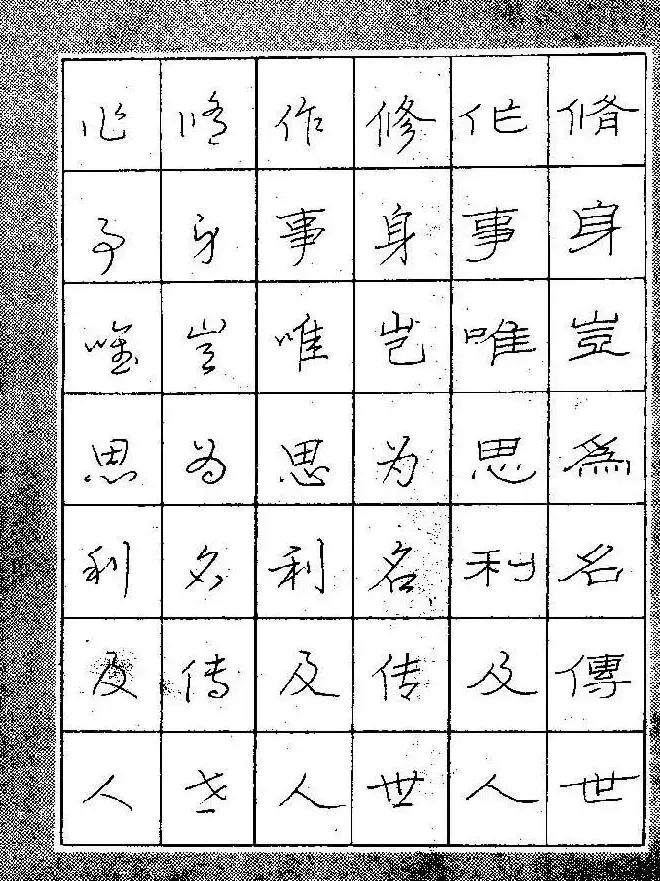 脩身豈爲名傳世
作事唯思利及人
修身岂为名传世
作事唯思利及人
修身岂为名传世
作事唯思利及人